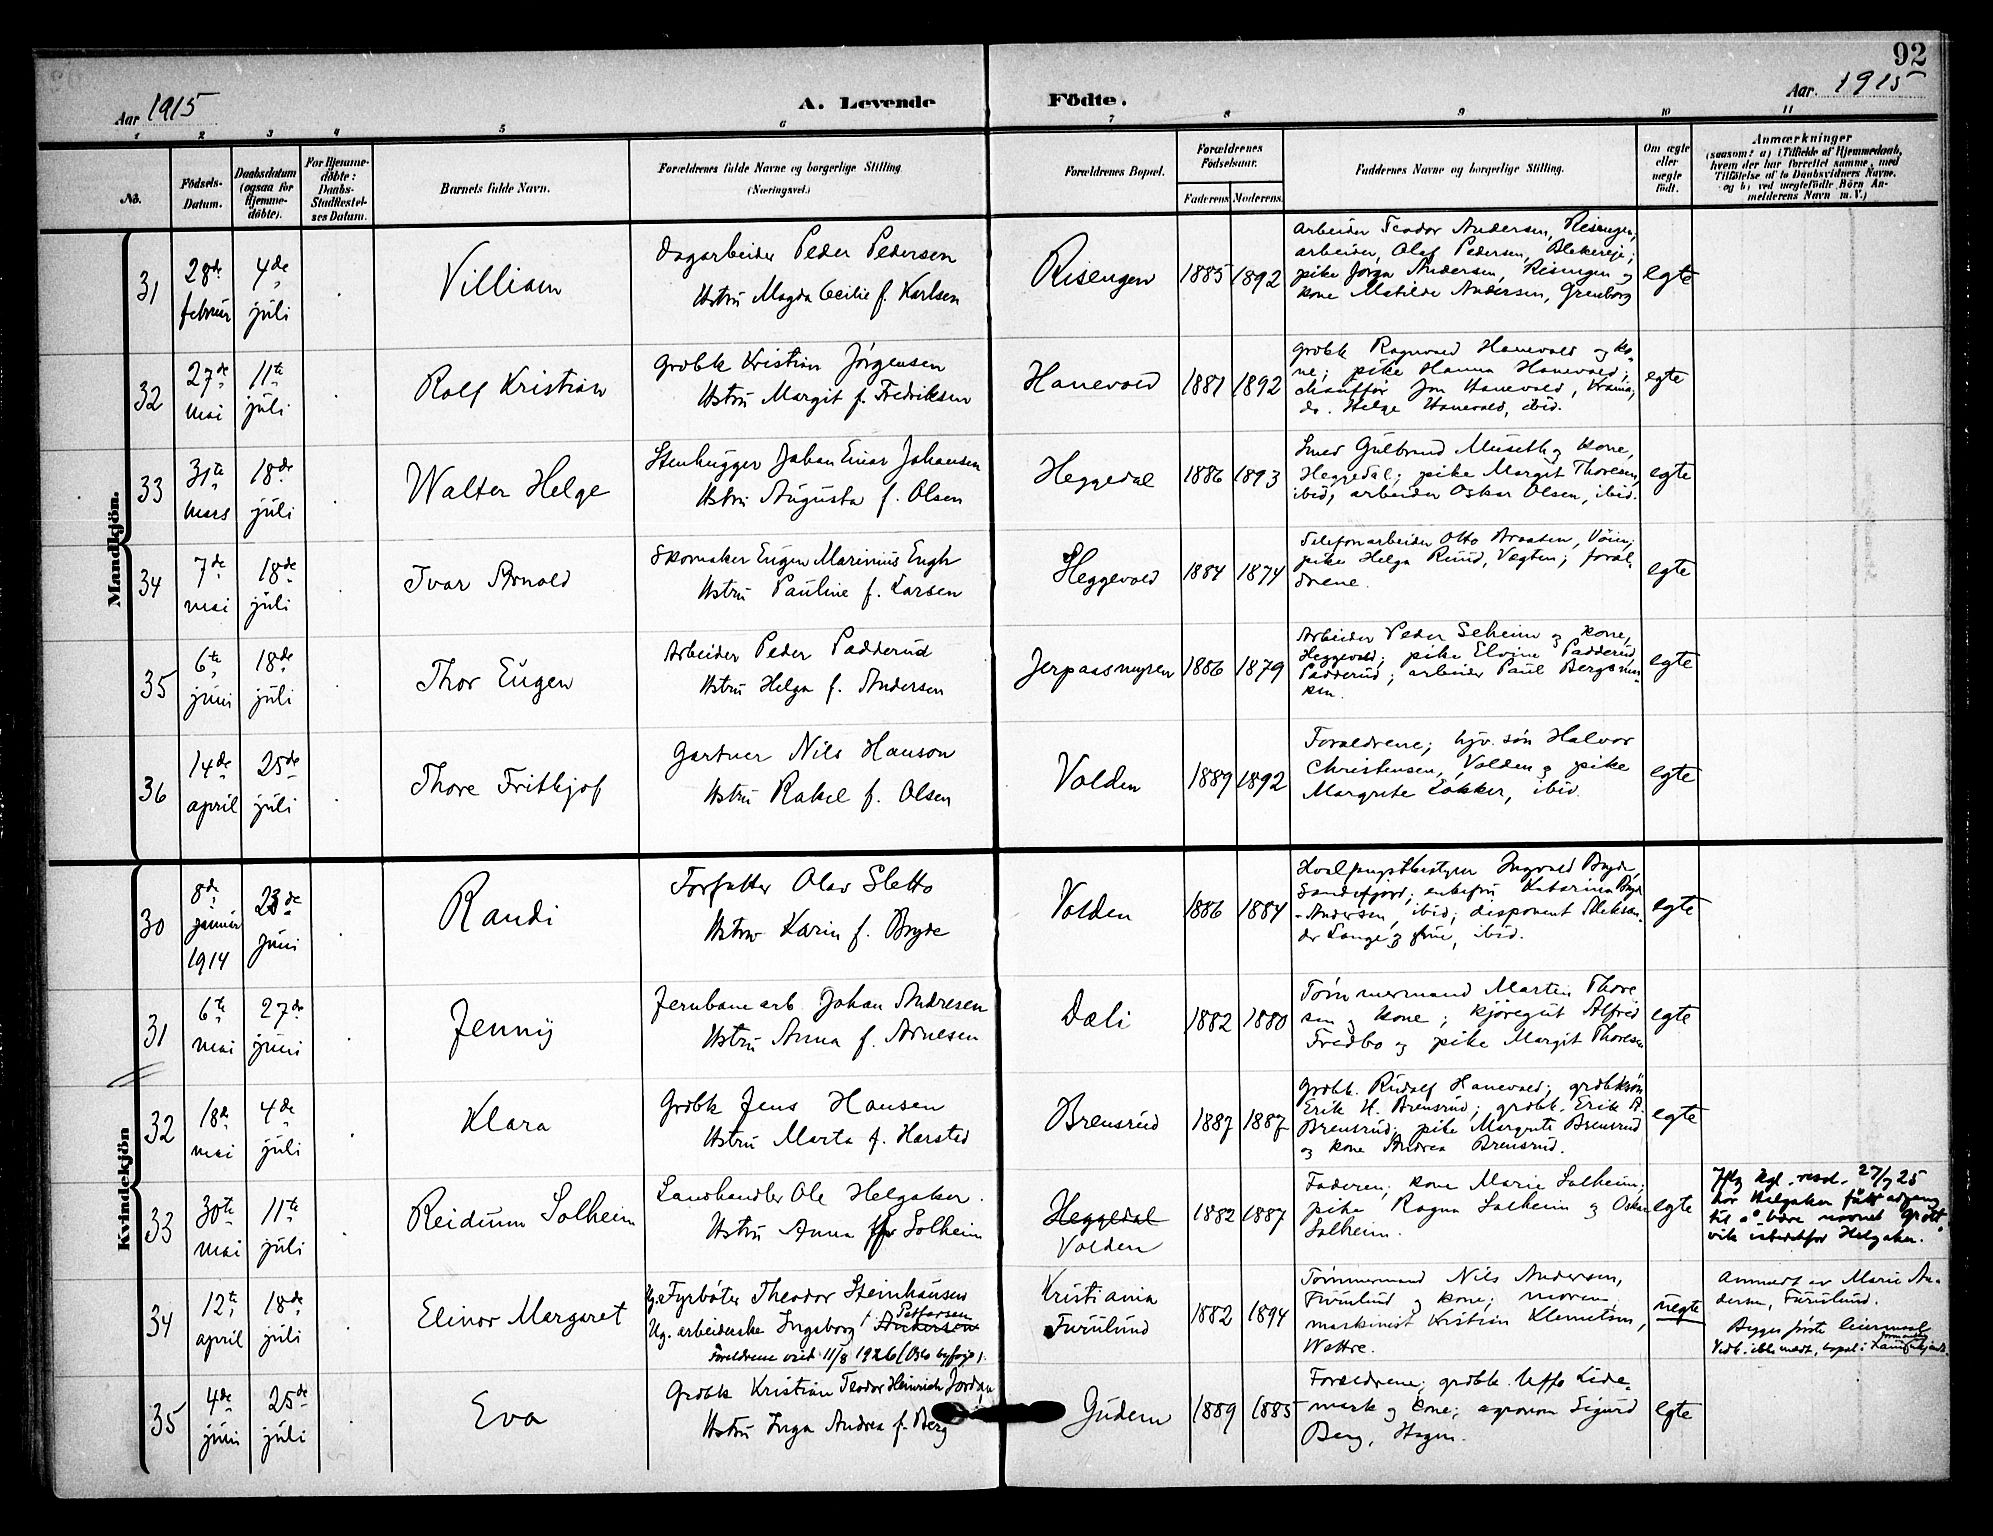 92
Aar 1915
A. Levende
Födte.
Aar. 1915
1 2 3 4 5 6 7 8 9 10 11
No.
Födsels-
Datum.
Daabsdatum
(ogsaa for
Hjemme-
döbte).
For Hjemme-
döbte:
Daabs-
Stadfæstel-
ses Datum.
Barnets fulde Navn.
Forældrenes fulde Navne og borgerlige Stilling
(Næringsvei.)
Forældrenes Bopæl.
Forældrenes
Födselsaar.
Faderens Moderens
Faddernes Navne og borgerlige Stilling.
Om ægte
eller
uægte
födt.
Anmærkninger
(saasom: a) i Tilfælde af Hjemmedaab,
hvem der har forrettet samme, med
Tilföielse af to Daabsvidners Navne.
og b) ved uægtefödte Börn An-
melderens Navn m. V.)
Mandkjön.
31
28de
februar
4de
juli
Villiam
Dagarbeider Peder Pedersen
Hstru Magda Cecilie f. Karlsen
Risengen
1885 1892
Arbeider Teodor Andersen, Risengen;
arbeider, Olaf Pedersen,
pike Andersen, Risengen og
kone Matilde Andersen, Grenborg
egte
32
27de
mai
11te
juli
Rolf Kristian
Grdbk Kristian Jörgensen
Hstru Margit f. Fredriksen
Hanevold
1881 1892
Grdbk Ragnvald Hanevold og ko-
ne; pike Hanna Hanevold;
chauffør Jon Hanevold, Krania,
do. Helge Hanevold, ibid.
egte
33
31te
mars
18de
juli
Walter Helge
Stenhugger Johan Einar Johansen
Hstru Augusta f. Olsen
Heggedal
1886 1893
Smed Gulbrand Museth og kone,
Heggedal; pike Margit Thoresen,
ibid; arbeider Oskar Olsen, ibid.
egte
34
7de
mai
18de
juli
Ivar Arnold
Skomaker Eugen Marinius Engh
Hstru Pauline f. Larsen
Heggevold
1884 1874
Telefonarbeider Otto Braaten, Vöien;
pike Helga Ruud, Vogten; foræl-
drene.
egte
35
6te
juni
18de
juli
Thor Eugen
Arbeider Peder Padderud
Hstru Helga f. Andersen
Jerpaasmyren
1886 1879
Arbeider Peder Seheim og kone,
Heggevold; pike Elvine Padderud,
Padderud; arbeider Paul Bergsmar-
ken.
egte
36
14de
april
25de
juli
Thore Fritkjof
Gartner Nils Hanson
Hstru Rakel f. Olsen
Volden
1889 1892
Forældrene; hjv. sön Halvor
Christensen, Volden og pike
Margrete Løkker, ibid.
egte
Kvindekjön
30
8de
januar
1914
23de
juni
Randi
Forfatter Olav Sletto
Hstru Karin f. Bryde
Volden
1886 1884
Hvalfangstbestyrer Ingvald Bryde,
Sandefjord; enkefru Katarina Bryde
-Andersen, ibid; disponent Aleksan-
der Lange og frue, ibid.
egte
31
6te
mai
27de
juni
Jenny
Jernbanearb Johan Andresen
Hstru Anna f. Arnesen
Dæli
1882 1880
Tömmermand Martin Thore
sen og kone; kjöregut Alfred
Fredbo og pike Margit Thoresen
egte
32
18de
mai
4de
juli
Klara
Grdbk Jens Hansen
Hstru Marta f. Harstad
Brensrud
1887 1887
Grdbk. Rudolf Hanevold; grdbksön
Erik H. Brensrud; grdbk. Erik A.
Brensrud; pike Margrete Brensrud
og kone Andrea Brensrud.
egte
33
30te
mai
11te
juli
Reidunn Solheim
Landhandler Ole Helgaker.
Hstru Anna f. Solheim
Heggedal
Volden
1882 1887
Faderen; kone Marie Solheim;
pike Ragna Solheim og Oskar
Solheim.
egte
Iflg kgl. resol. 27/7 25
har Helgaker fått adgang
til å bære navnet Grott-
vik istedetfor Helgaker.
34
12te
april
18de
juli
Elinor Margaret
Ug. Fyrböter Theodor Steinhausen
Ug. arbeiderske Ingeborg Pettersen Andersen
Foreldrene viet 11/8 1926 (Oslo byfoge).
Kristiania
Furulund
1882 1894
Tömmermand Nils Andersen,
Furulund og kone; moren;
maskinist Kristian Klemetsen,
Wettre.
uegte
Anmeldt av Marie An-
dersen, Furulund.
Begges förste leiermaal
35
4de
juni
25de
juli
Eva
Grdbk Kristian Teodor Heinrich Jordan
Hstru Inga Andrea f. Berg
Gudem
1889 1885
Forældrene; grdbk. Uffe Lide-
mark og kone; agronom Sigurd
Berg, Hagen.
egte